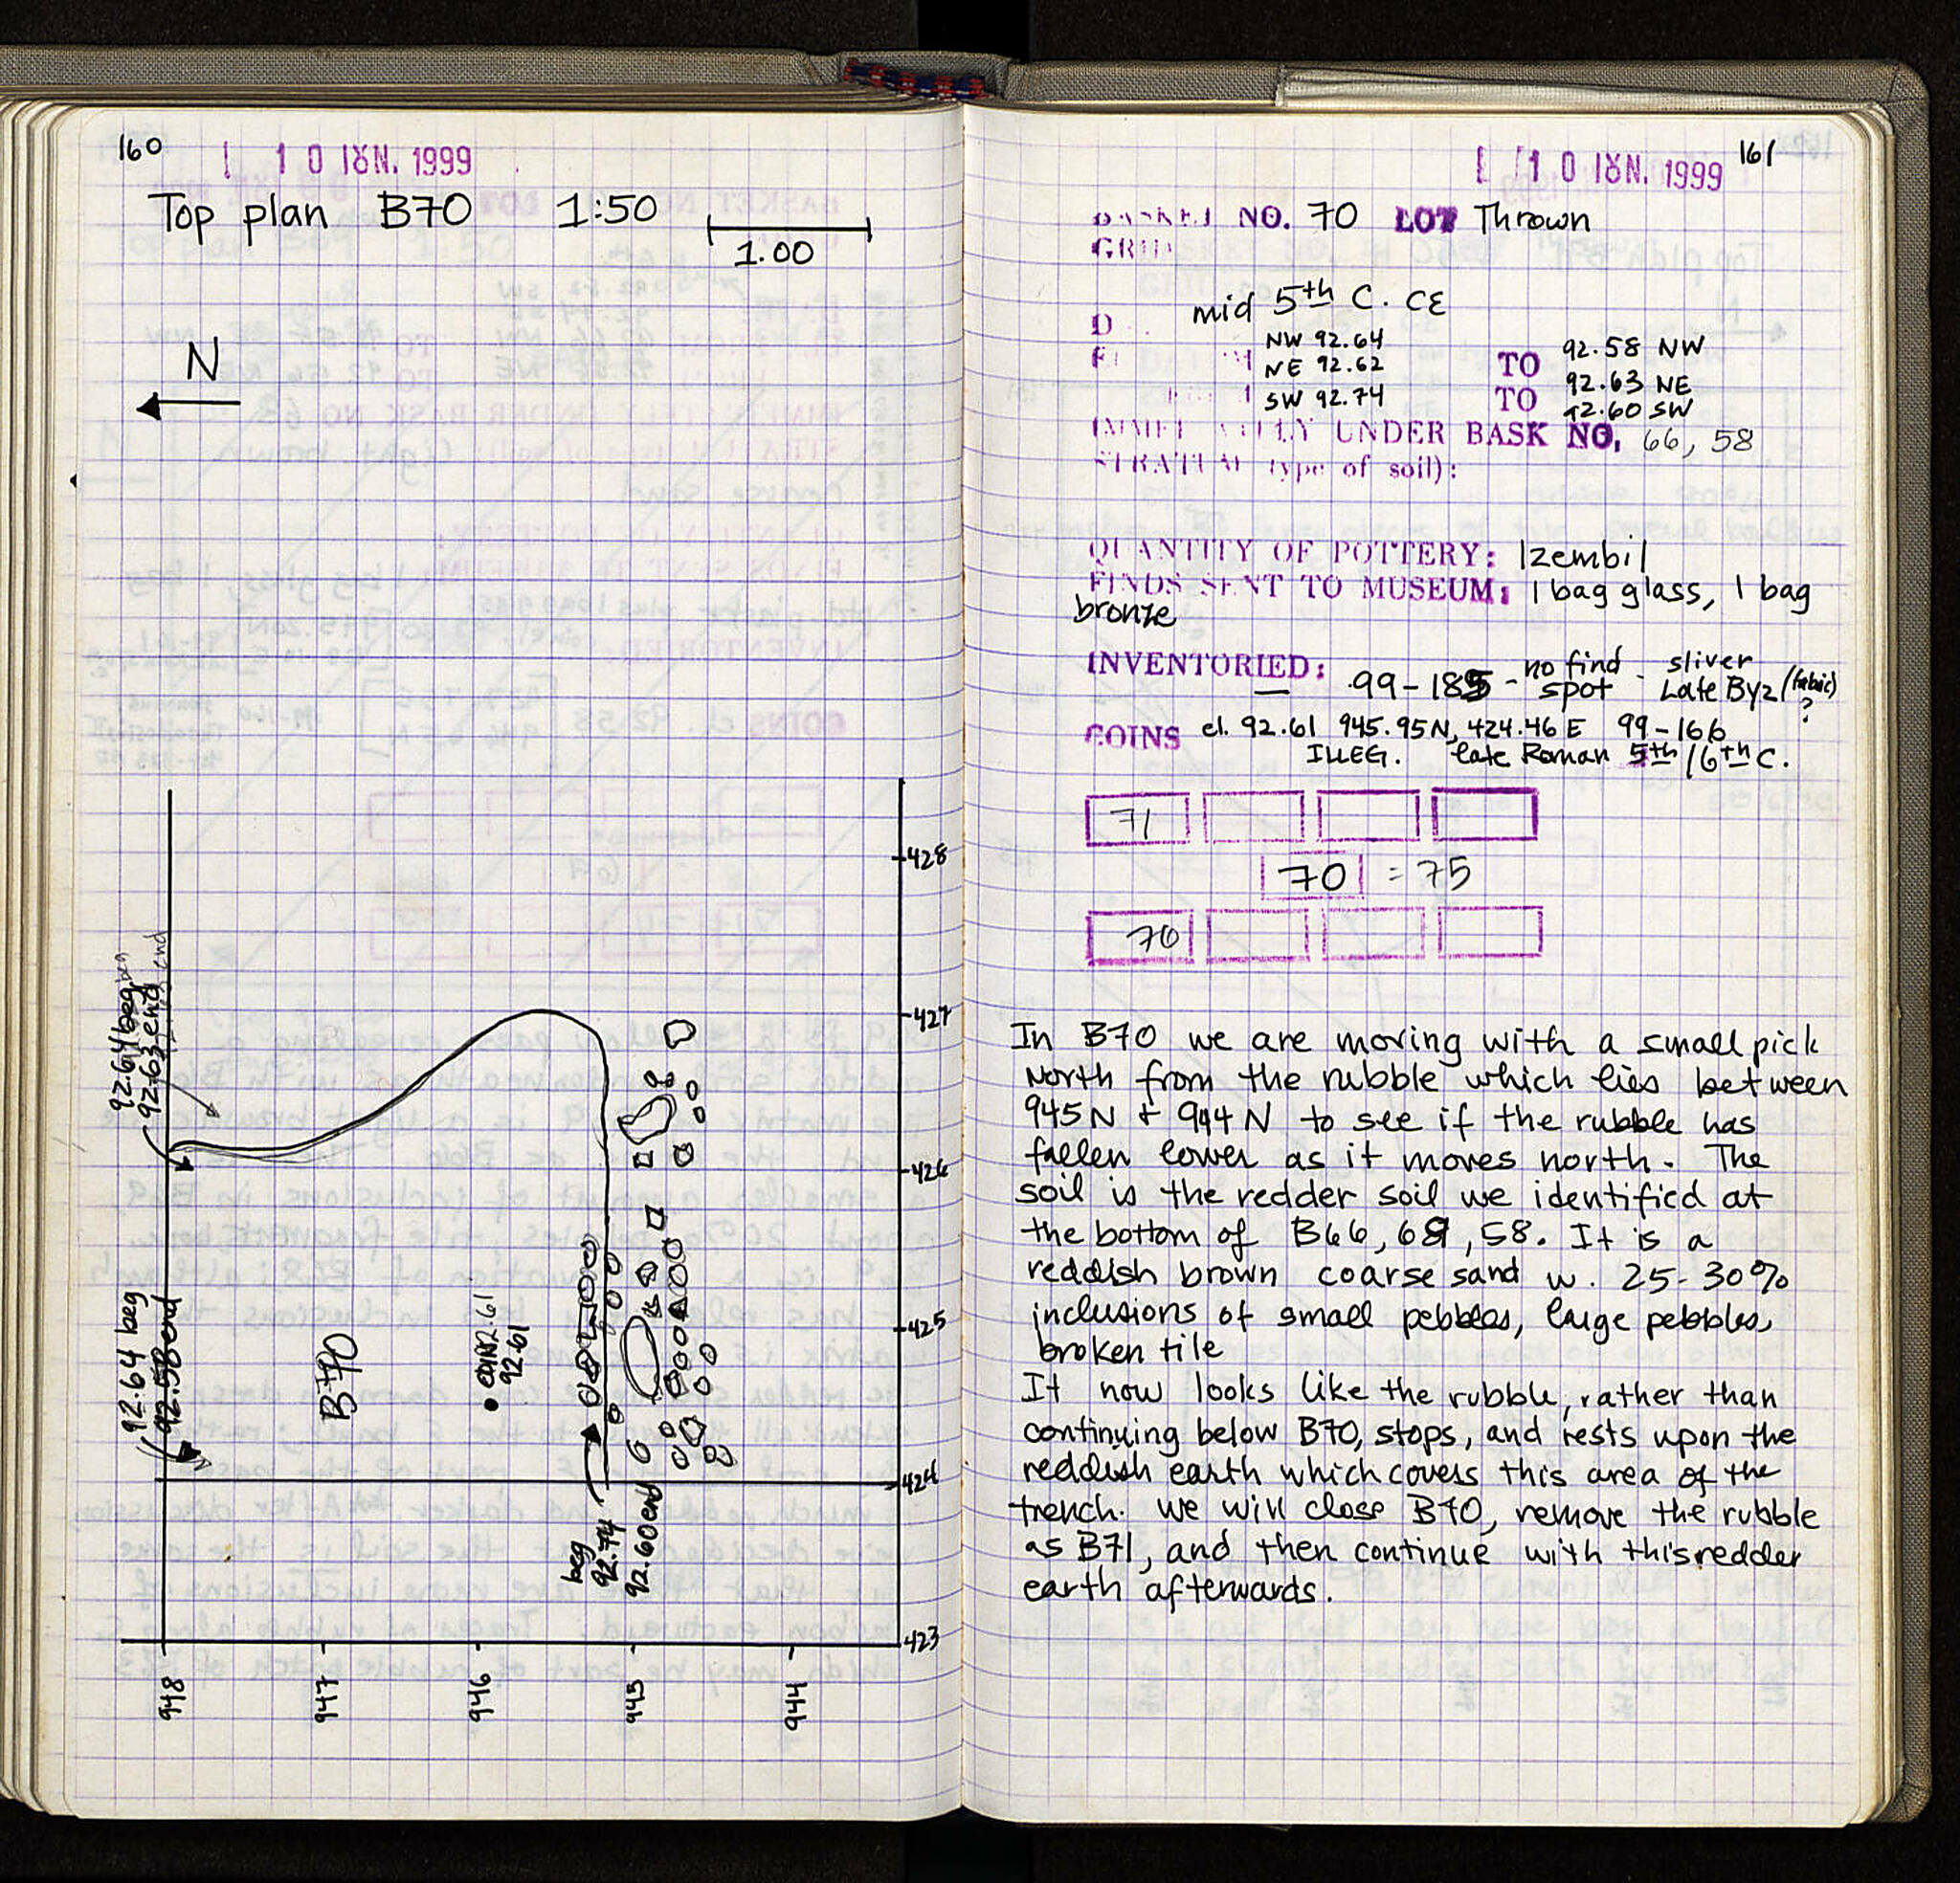 160
10 ΙΟΥΝ. 1999
Top plan B70 1:50
1.00
N
428
427
426
425
424
423
948
947
946
945
944
92.64 beg
92.63 end
92.64 beg
92.58 end
B70
92.61
beg
92.74
92.60 end
161
10 ΙΟΥΝ. 1999
BASKET NO. 70 LOT Thrown
GRID
mid 5th C. CE
NW 92.64 TO 92.58 NW
NE 92.62 92.63 NE
SW 92.74 TO 92.60 SW
IMMEDIATELY UNDER BASK NO. 66, 58
STRATUM type of soil):
QUANTITY OF POTTERY: 1 zembil
FINDS SENT TO MUSEUM: 1 bag glass, 1 bag
bronze
INVENTORIED: 99-185 - no find spot - sliver Late Byz (fabric) ?
COINS el. 92.61 945.95 N, 424.46 E 99-166
ILLEG. late Roman 5th/6th C.
71
70 = 75
70
In B70 we are moving with a small pick
North from the rubble which lies between
945 N + 944 N to see if the rubble has
fallen lower as it moves north. The
soil is the redder soil we identified at
the bottom of B66, 69, 58. It is a
reddish brown coarse sand w. 25-30%
inclusions of small pebbles, large pebbles,
broken tile
It now looks like the rubble, rather than
continuing below B70, stops, and rests upon the
reddish earth which covers this area of the
trench. We will close B70, remove the rubble
as B71, and then continue with this redder
earth afterwards.